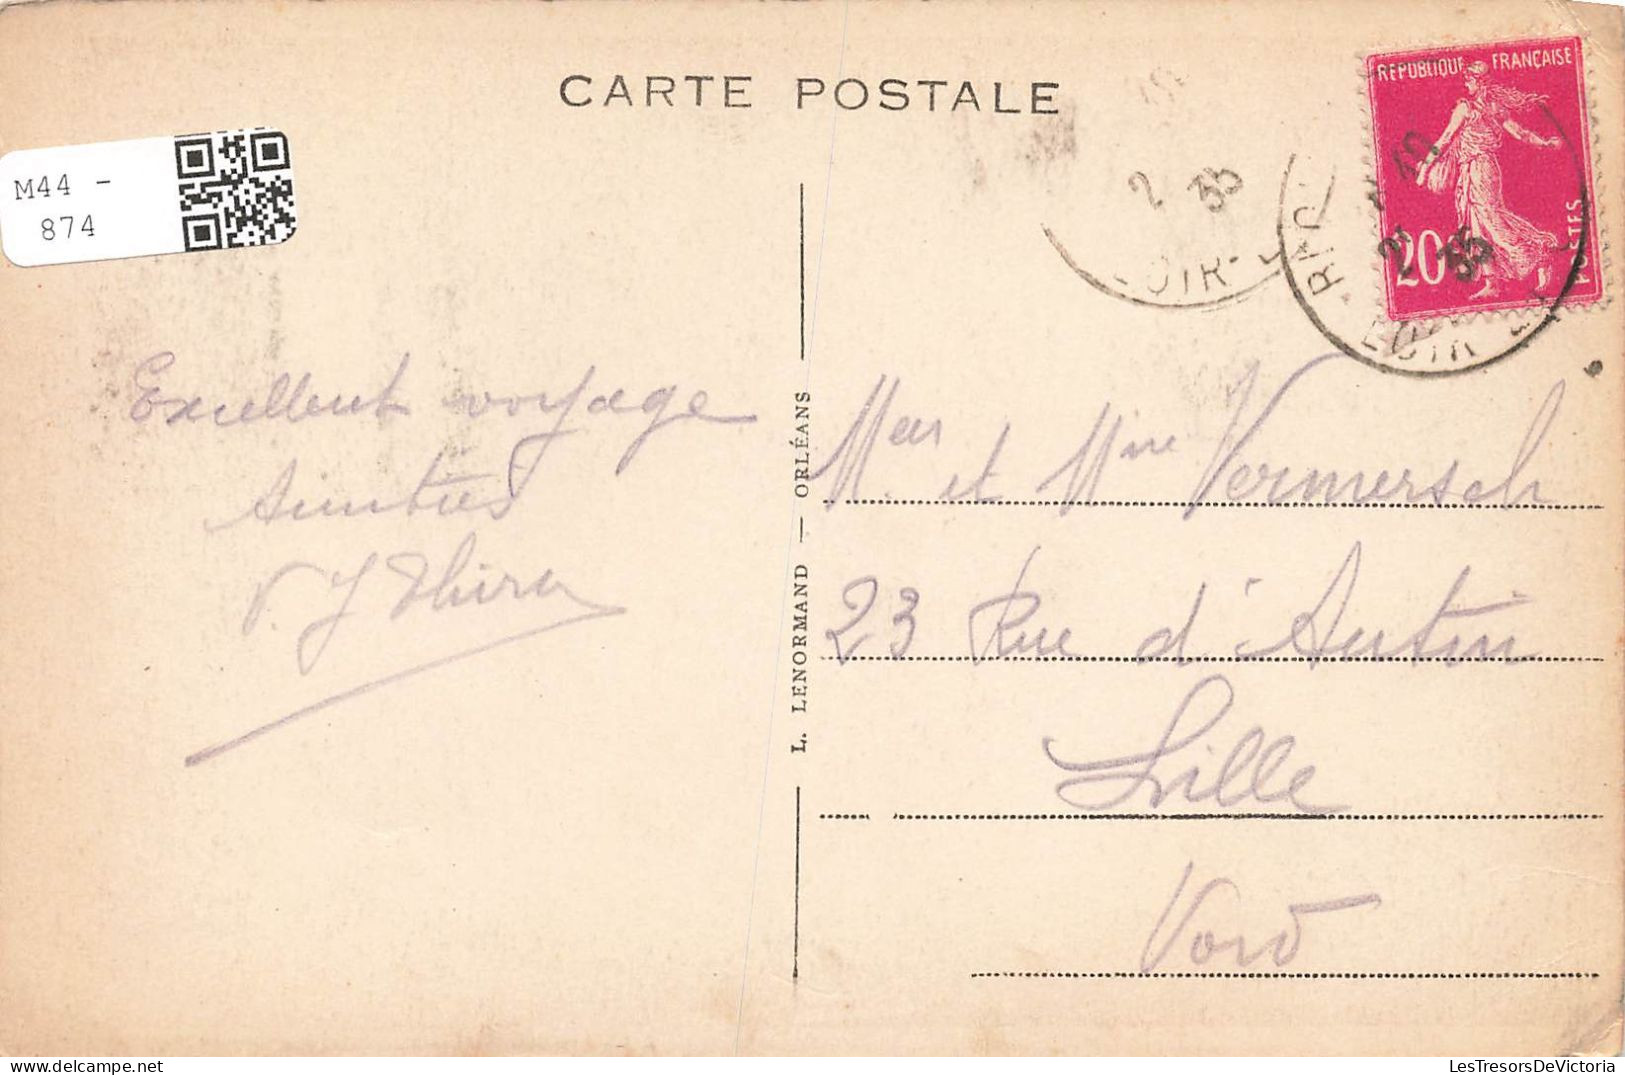 CARTE POSTALE
REPUBLIQUE FRANÇAISE
POSTES
20
2 35
OIR
2 35
M44 -
874
Excellent voyage
Amitiés
L. LENORMAND — ORLÉANS
et Mme Vermersch
23 Rue d'Antin
Lille
Nord
LesTresorsDeVictoria